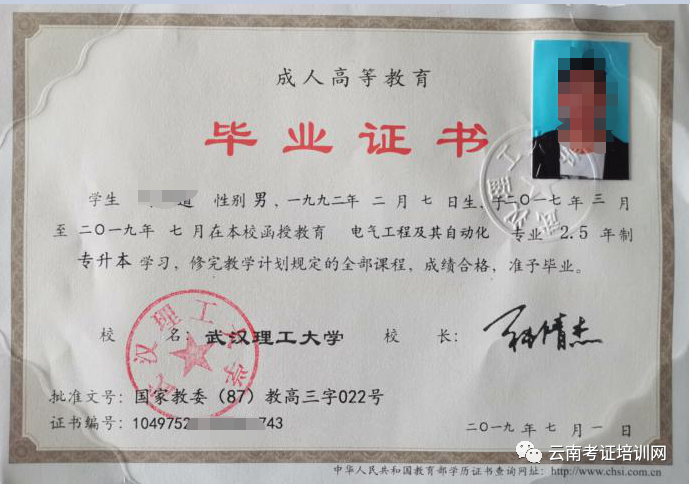 成人高等教育
毕业证书
学生 道 性别 男，一九九二年 二 月 七 日生，于二〇一七年 三 月
至 二〇一九年 七 月在本校函授教育 电气工程及其自动化 专业 2.5 年制
专升本 学习，修完教学计划规定的全部课程，成绩合格，准予毕业。
校 名：武汉理工大学 校 长：
武汉理工大学
批准文号：国家教委（87）教高三字022号
证书编号：1049752 743
二〇一九 年 七 月 一 日
云南考证培训网
中华人民共和国教育部学历证书查询网址：http://www.chsi.com.cn